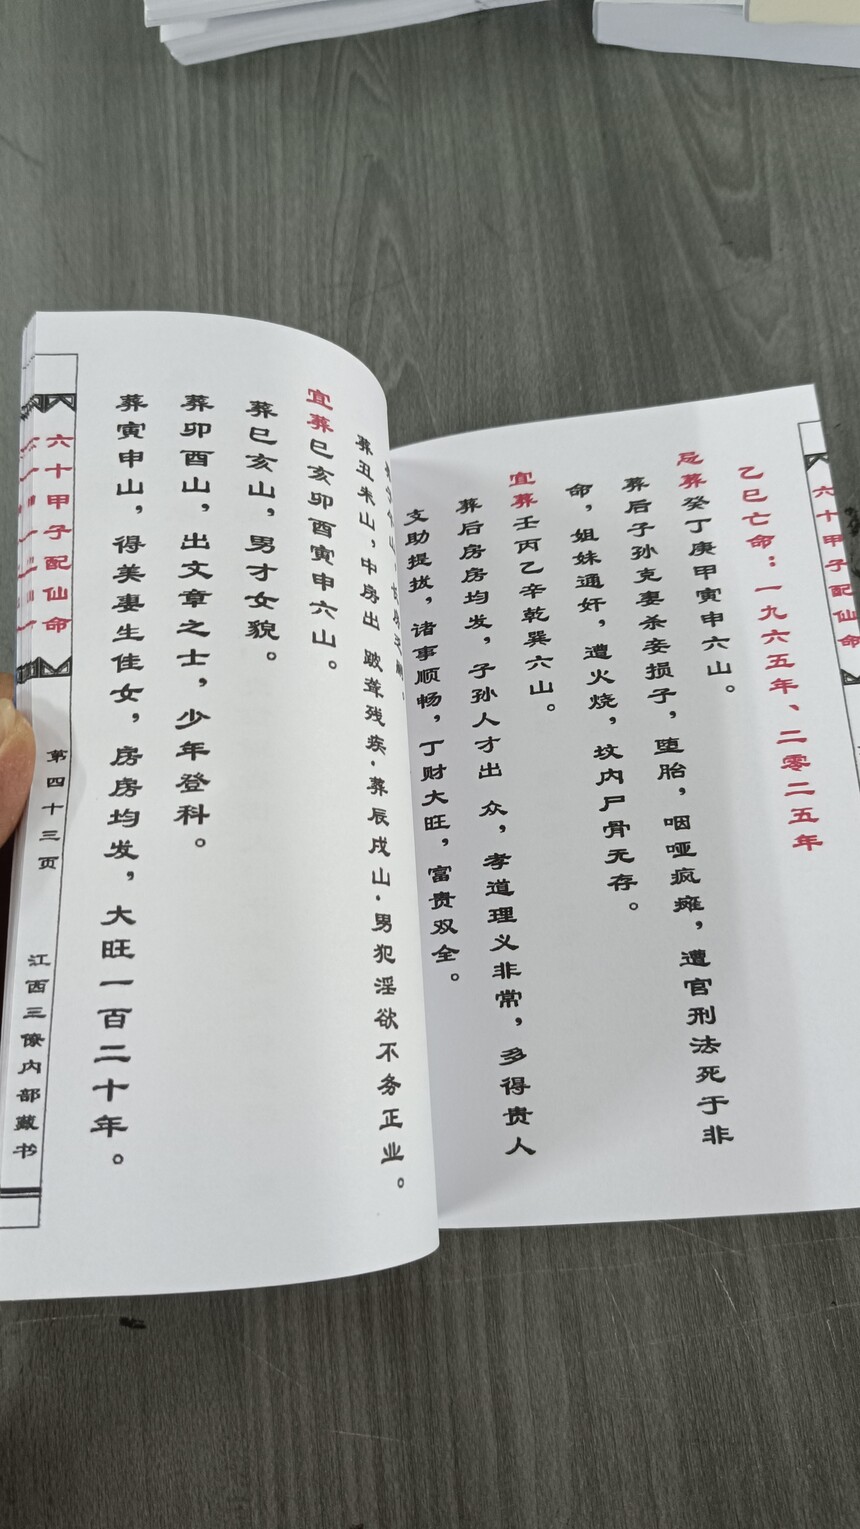 六十甲子配仙命
乙巳亡命：一九六五年、二零二五年
忌葬癸丁庚甲寅申六山。
葬后子孙克妻杀妾损子，堕胎，咽哑疯瘫，遭官刑法死于非
命，姐妹通奸，遭火烧，坟内尸骨无存。
宜葬壬丙乙辛乾巽六山。
葬后房房均发，子孙人才出 众，孝道理义非常，多得贵人
支助提拔，诸事顺畅，丁财大旺，富贵双全。
葬丑未山，中房出 跛聋残疾·葬辰戌山·男犯淫欲不务正业。
宜葬巳亥卯酉寅申六山。
葬巳亥山，男才女貌。
葬卯酉山，出文章之士，少年登科。
葬寅申山，得美妻生佳女，房房均发，大旺一百二十年。
六十甲子配仙命
第四十三页
江西三僚内部藏书